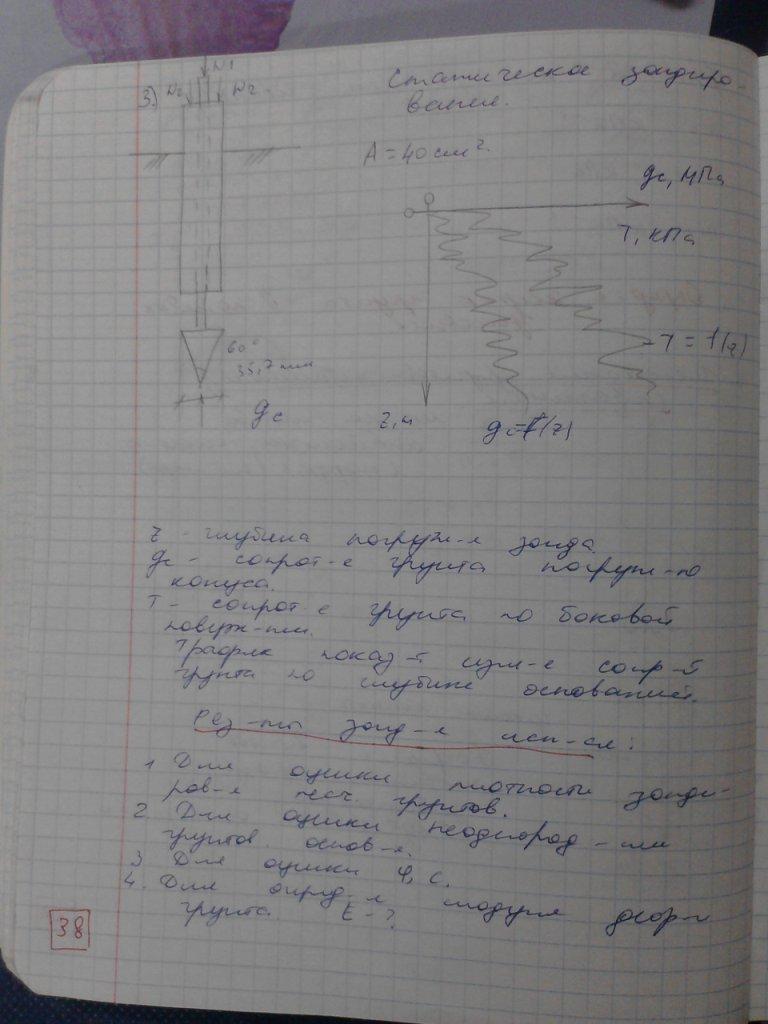 N1
3) N2 N2
Статическое зондиро-
вание.
A = 40 см².
qc, МПа
T, кПа
60°
35,7 мм
T = f(z)
qc
z, м
qc = f(z)
z - глубина погруж-е зонда.
qc - сопрот-е грунта погруж-ю
конуса.
T - сопрот-е грунта по боковой
поверх-сти.
График показ-т изм-е сопр-й
грунта по глубине основаниий.
Рез-ты зонд-я исп-ся:
1 Для оценки плотности зонди-
ров-я песч. грунтов.
2. Для оценки неоднород-сти
грунтов основ-я.
3 Для оценки φ, c.
4. Для опред-я модуля дефор-и
грунта E - ?
38